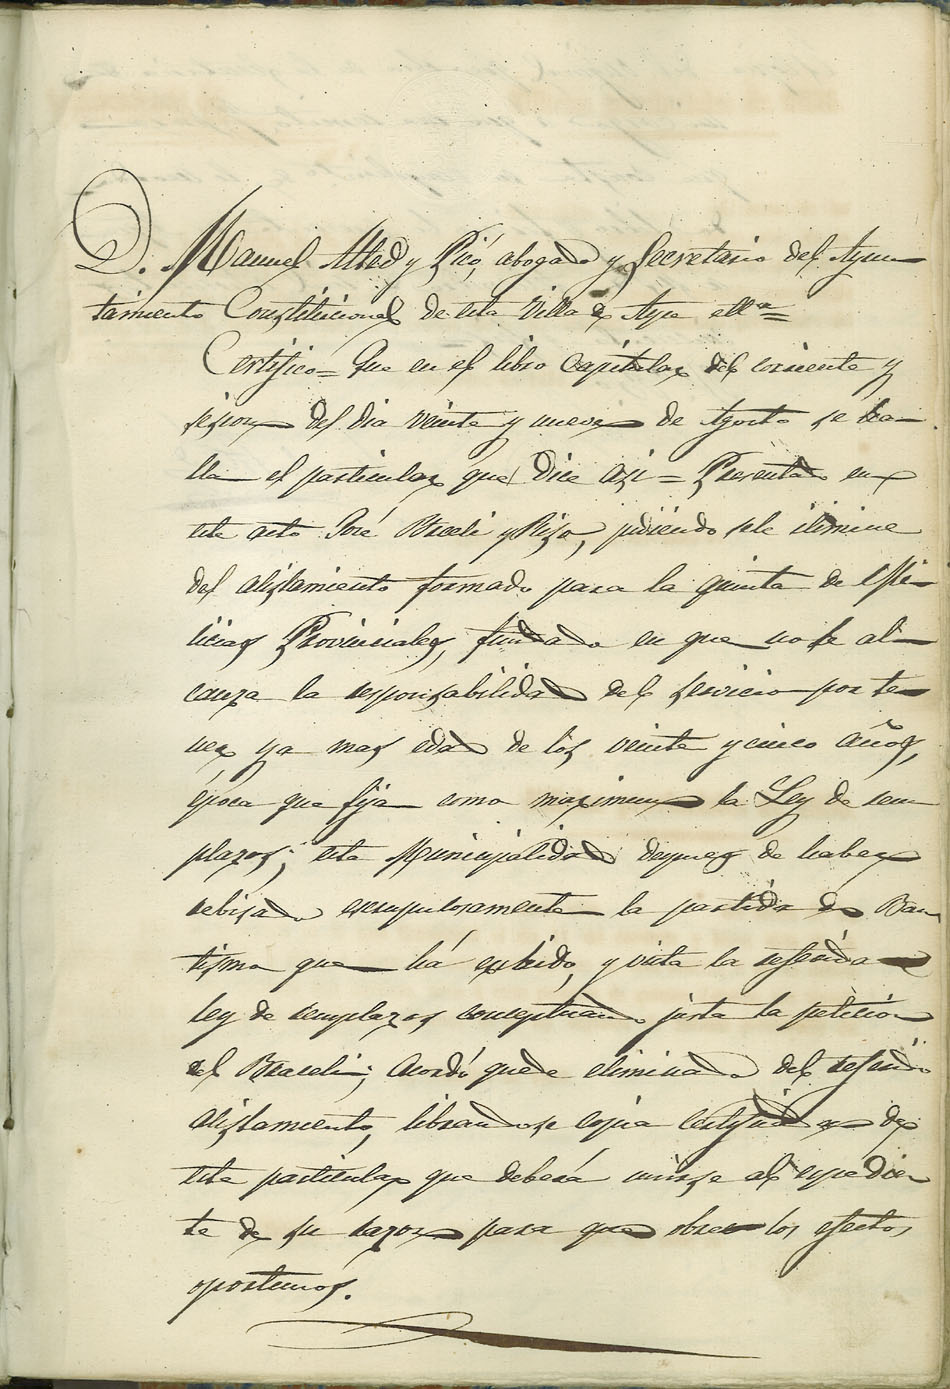 D. Manuel Albed y Picó, abogado y Secretario del Ayun
tamiento Constitucional de esta Villa de Aspe ettª=
Certifico= Que en el libro Capitular del corriente y
sesion del dia veinte y nueve de Agosto se ha-
lla el particular que dice asi = Presentado en
este acto José Braceli y Rizo, pidiendo se le elimine
del alistamiento formado para la quinta de Mi-
licias Provinciales, fundado en que no le al-
canza la responsabilidad del servicio por te-
ner ya mas edad de los veinte y cinco años,
epoca que fija como maximum la Ley de reem
plazos; esta Municipalidad despues de haber
rebisado escrupulosamente la partida de Bau
tismo que há exibido, y vista la referida
ley de remplazos conceptuando justa la peticion
del Braceli; Acordó quede eliminado del referido
alistamiento, librandose copia certificada de
este particular que deberá unirse al espedien
te de su razon para que obre los efectos
oportunos.